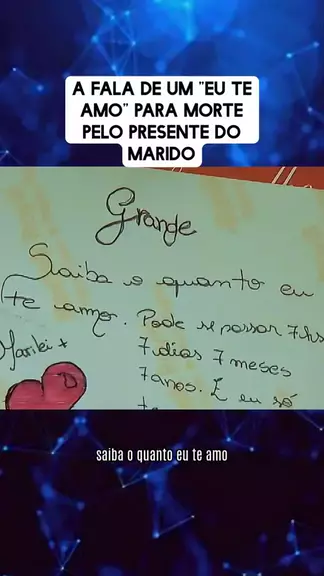 A FALA DE UM "EU TE
AMO" PARA MORTE
PELO PRESENTE DO
MARIDO
Grande
Saiba o quanto eu
te amo. Pode se passar 7hs
Marilei +
7 dias 7 meses
7 anos. E eu só
saiba o quanto eu te amo